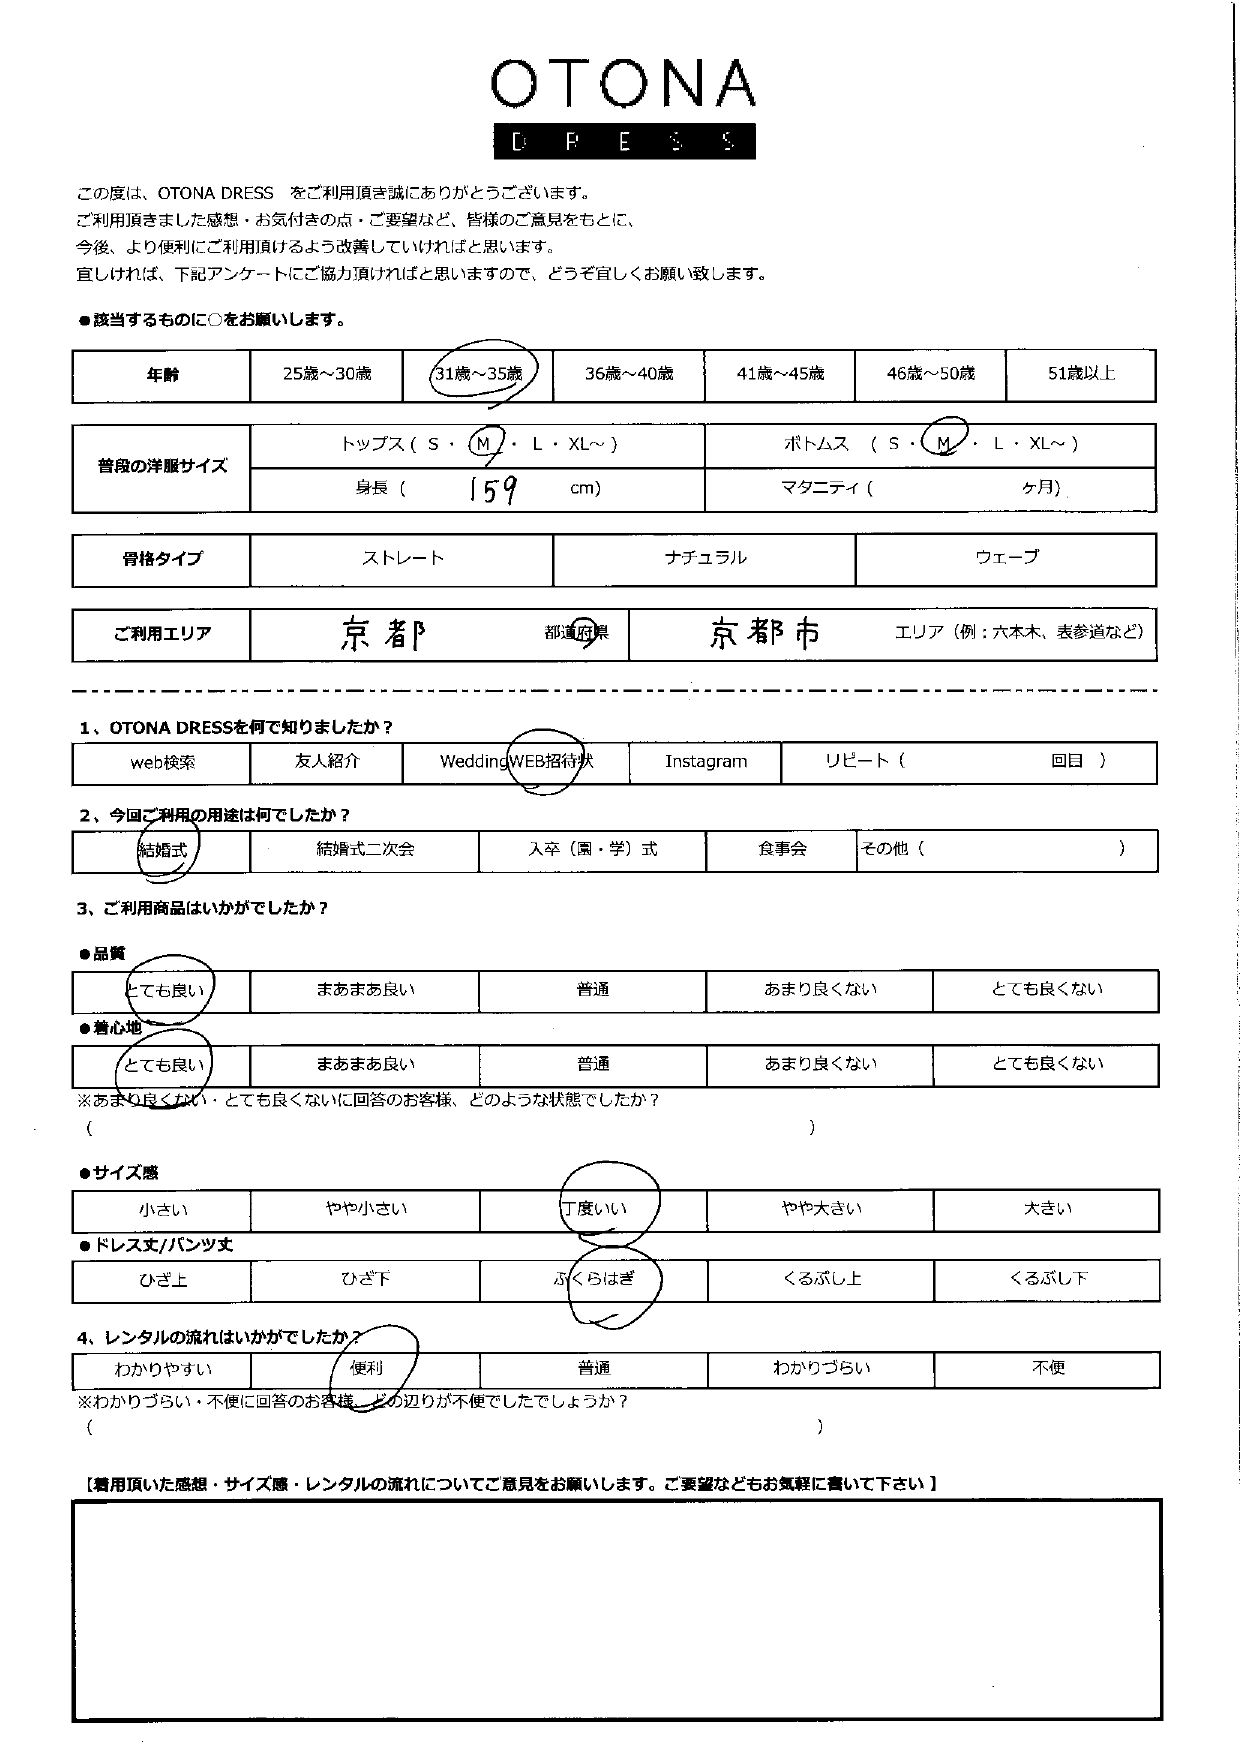 OTONA
DRESS
この度は、OTONA DRESS　をご利用頂き誠にありがとうございます。
ご利用頂きました感想・お気付きの点・ご要望など、皆様のご意見をもとに、
今後、より便利にご利用頂けるよう改善していければと思います。
宜しければ、下記アンケートにご協力頂ければと思いますので、どうぞ宜しくお願い致します。
●該当するものに○をお願いします。
年齢 25歳～30歳 31歳～35歳 36歳～40歳 41歳～45歳 46歳～50歳 51歳以上
普段の洋服サイズ トップス ( S ・ M ・ L ・ XL～ ) ボトムス ( S ・ M ・ L ・ XL～ )
身長 ( 159 cm) マタニティ ( ケ月)
骨格タイプ ストレート ナチュラル ウェーブ
ご利用エリア 京都 都道府県 京都市 エリア（例：六本木、表参道など）
1、OTONA DRESSを何で知りましたか？
web検索 友人紹介 WeddingWEB招待状 Instagram リピート（ 回目 ）
2、今回ご利用の用途は何でしたか？
結婚式 結婚式二次会 入卒（園・学）式 食事会 その他（ ）
3、ご利用商品はいかがでしたか？
●品質
とても良い まあまあ良い 普通 あまり良くない とても良くない
●着心地
とても良い まあまあ良い 普通 あまり良くない とても良くない
※あまり良くない・とても良くないに回答のお客様、どのような状態でしたか？
( )
●サイズ感
小さい やや小さい 丁度いい やや大きい 大きい
●ドレス丈/パンツ丈
ひざ上 ひざ下 ふくらはぎ くるぶし上 くるぶし下
4、レンタルの流れはいかがでしたか？
わかりやすい 便利 普通 わかりづらい 不便
※わかりづらい・不便に回答のお客様、どの辺りが不便でしたでしょうか？
( )
【着用頂いた感想・サイズ感・レンタルの流れについてご意見をお願いします。ご要望などもお気軽に書いて下さい 】